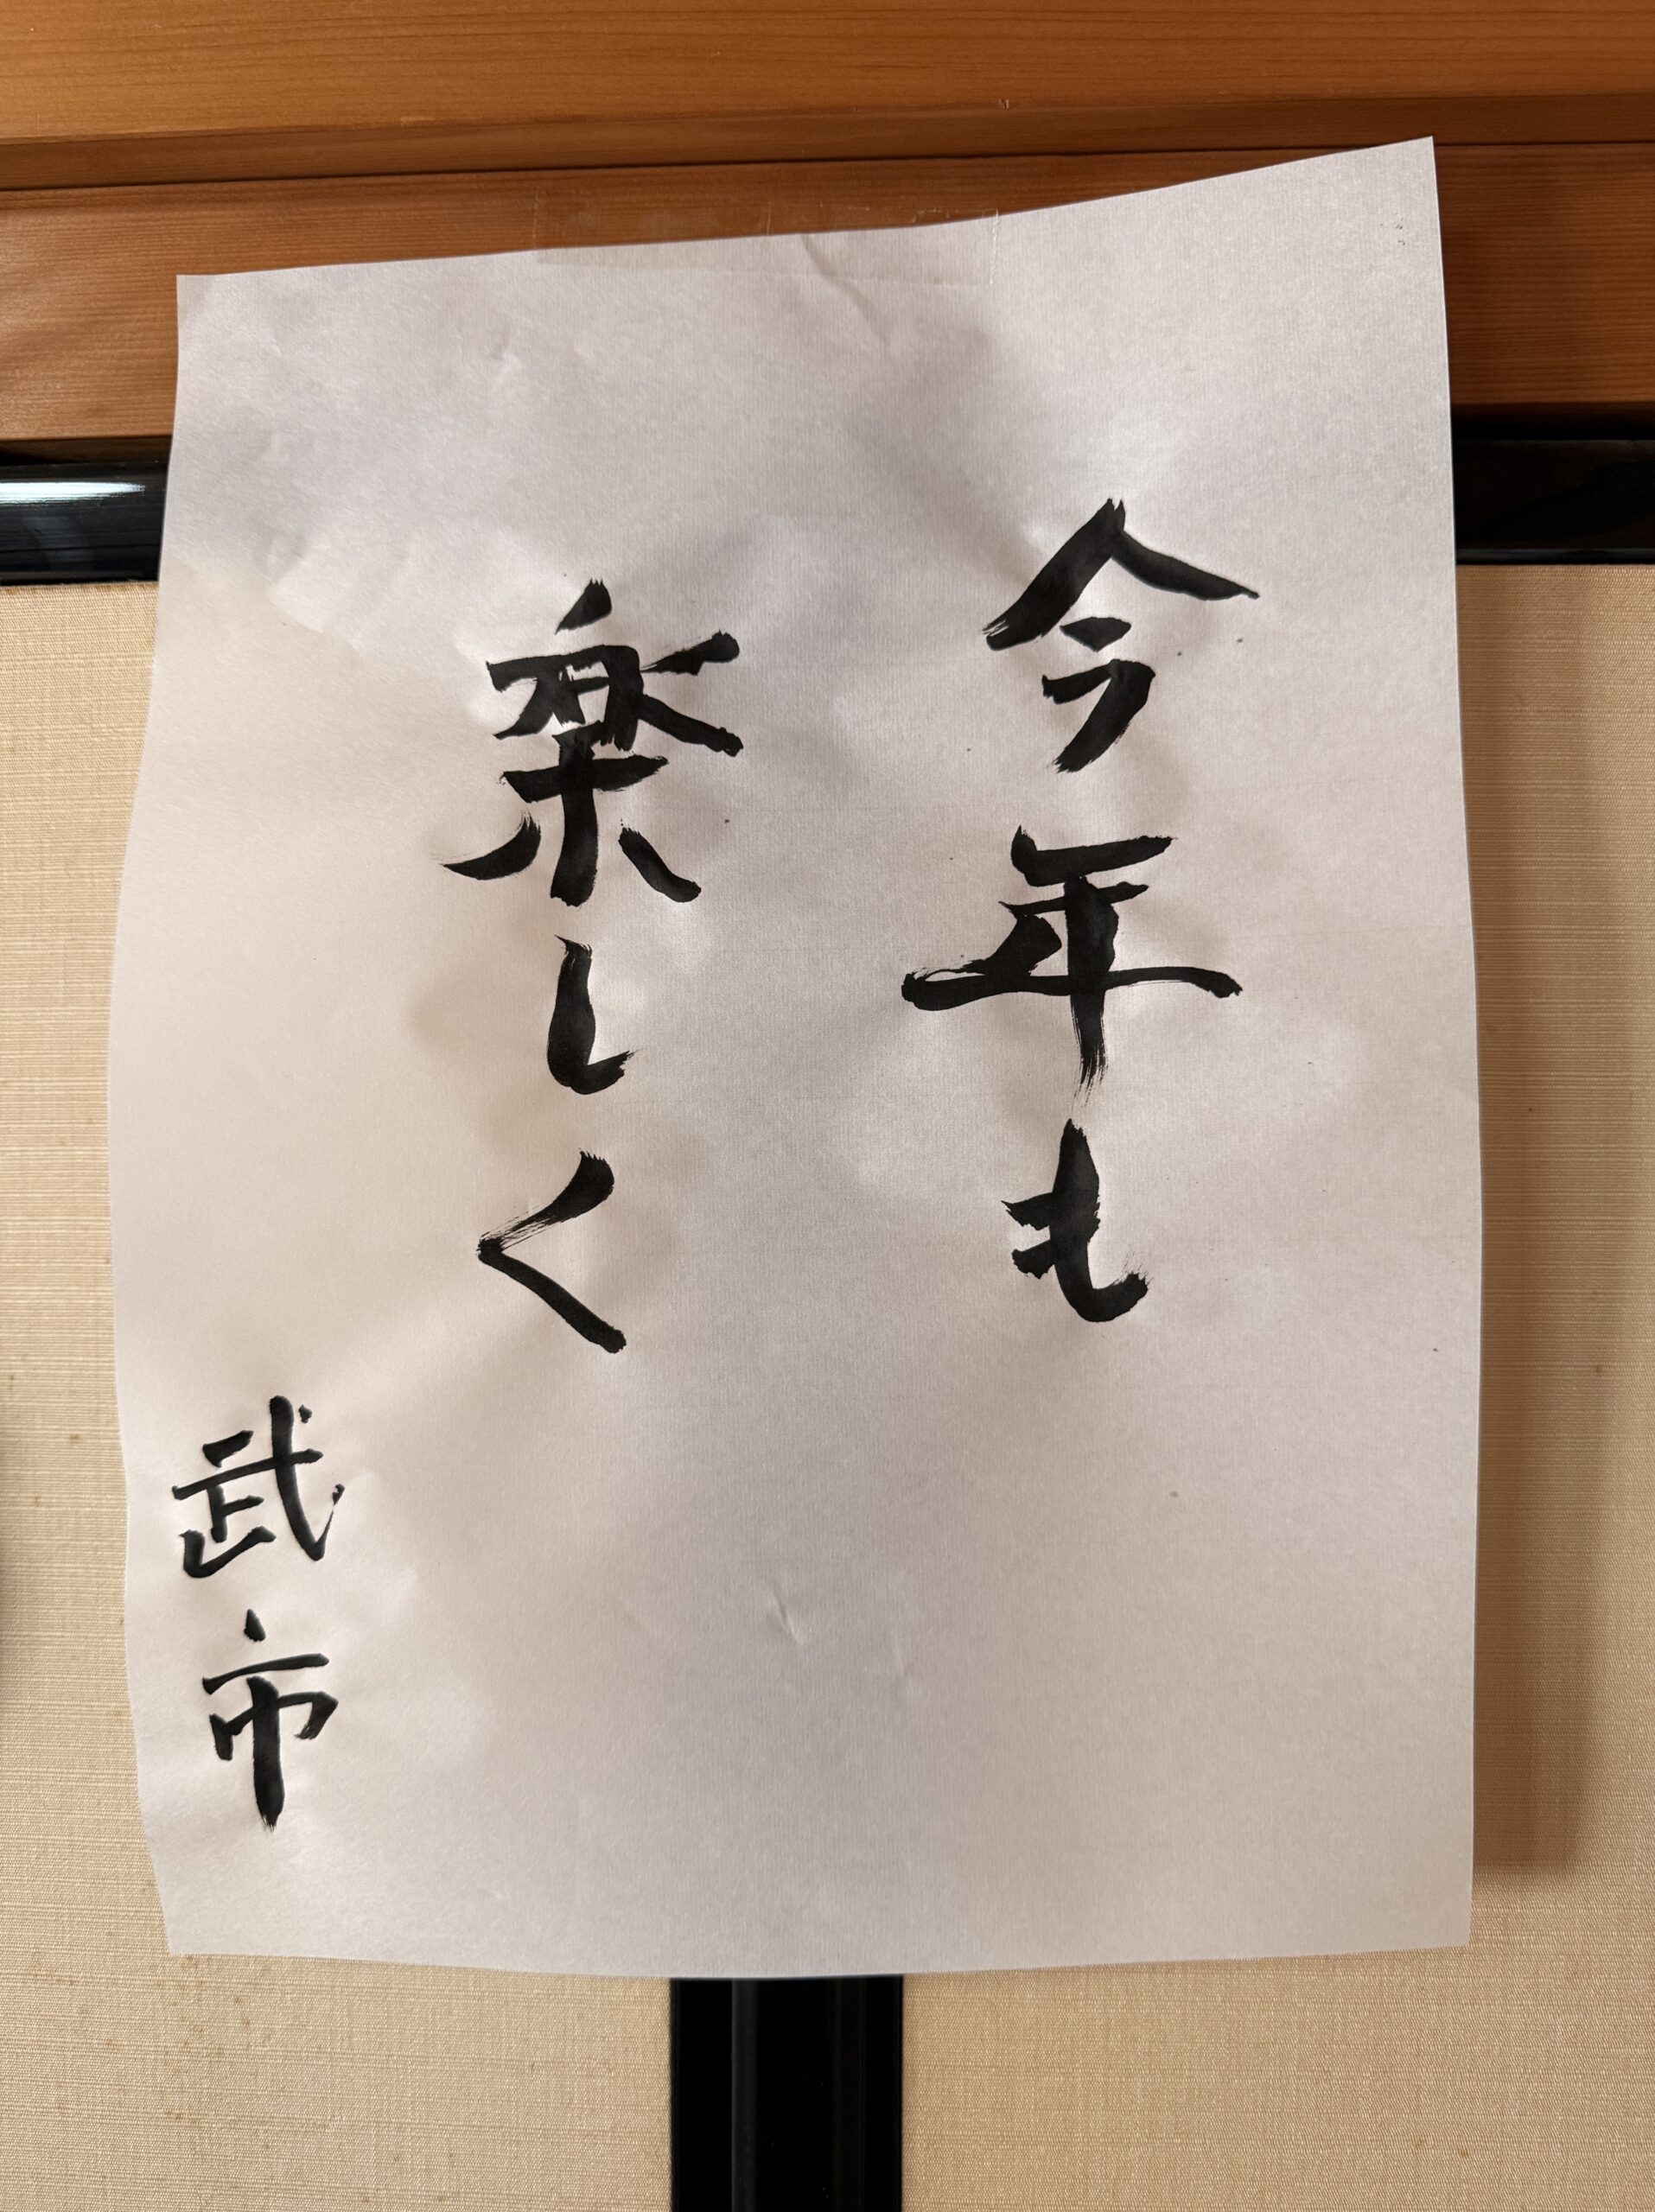 今年も
楽しく
武市